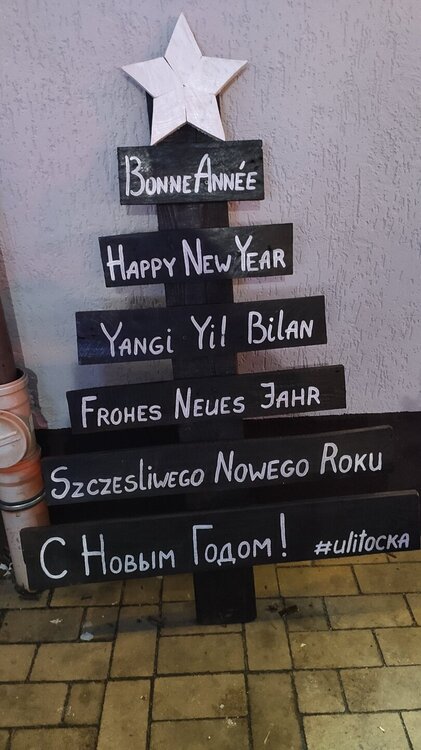 Bonne Année
Happy New Year
Yangi Yil Bilan
Frohes Neues Jahr
Szczesliwego Nowego Roku
С Новым Годом! #ulitocka